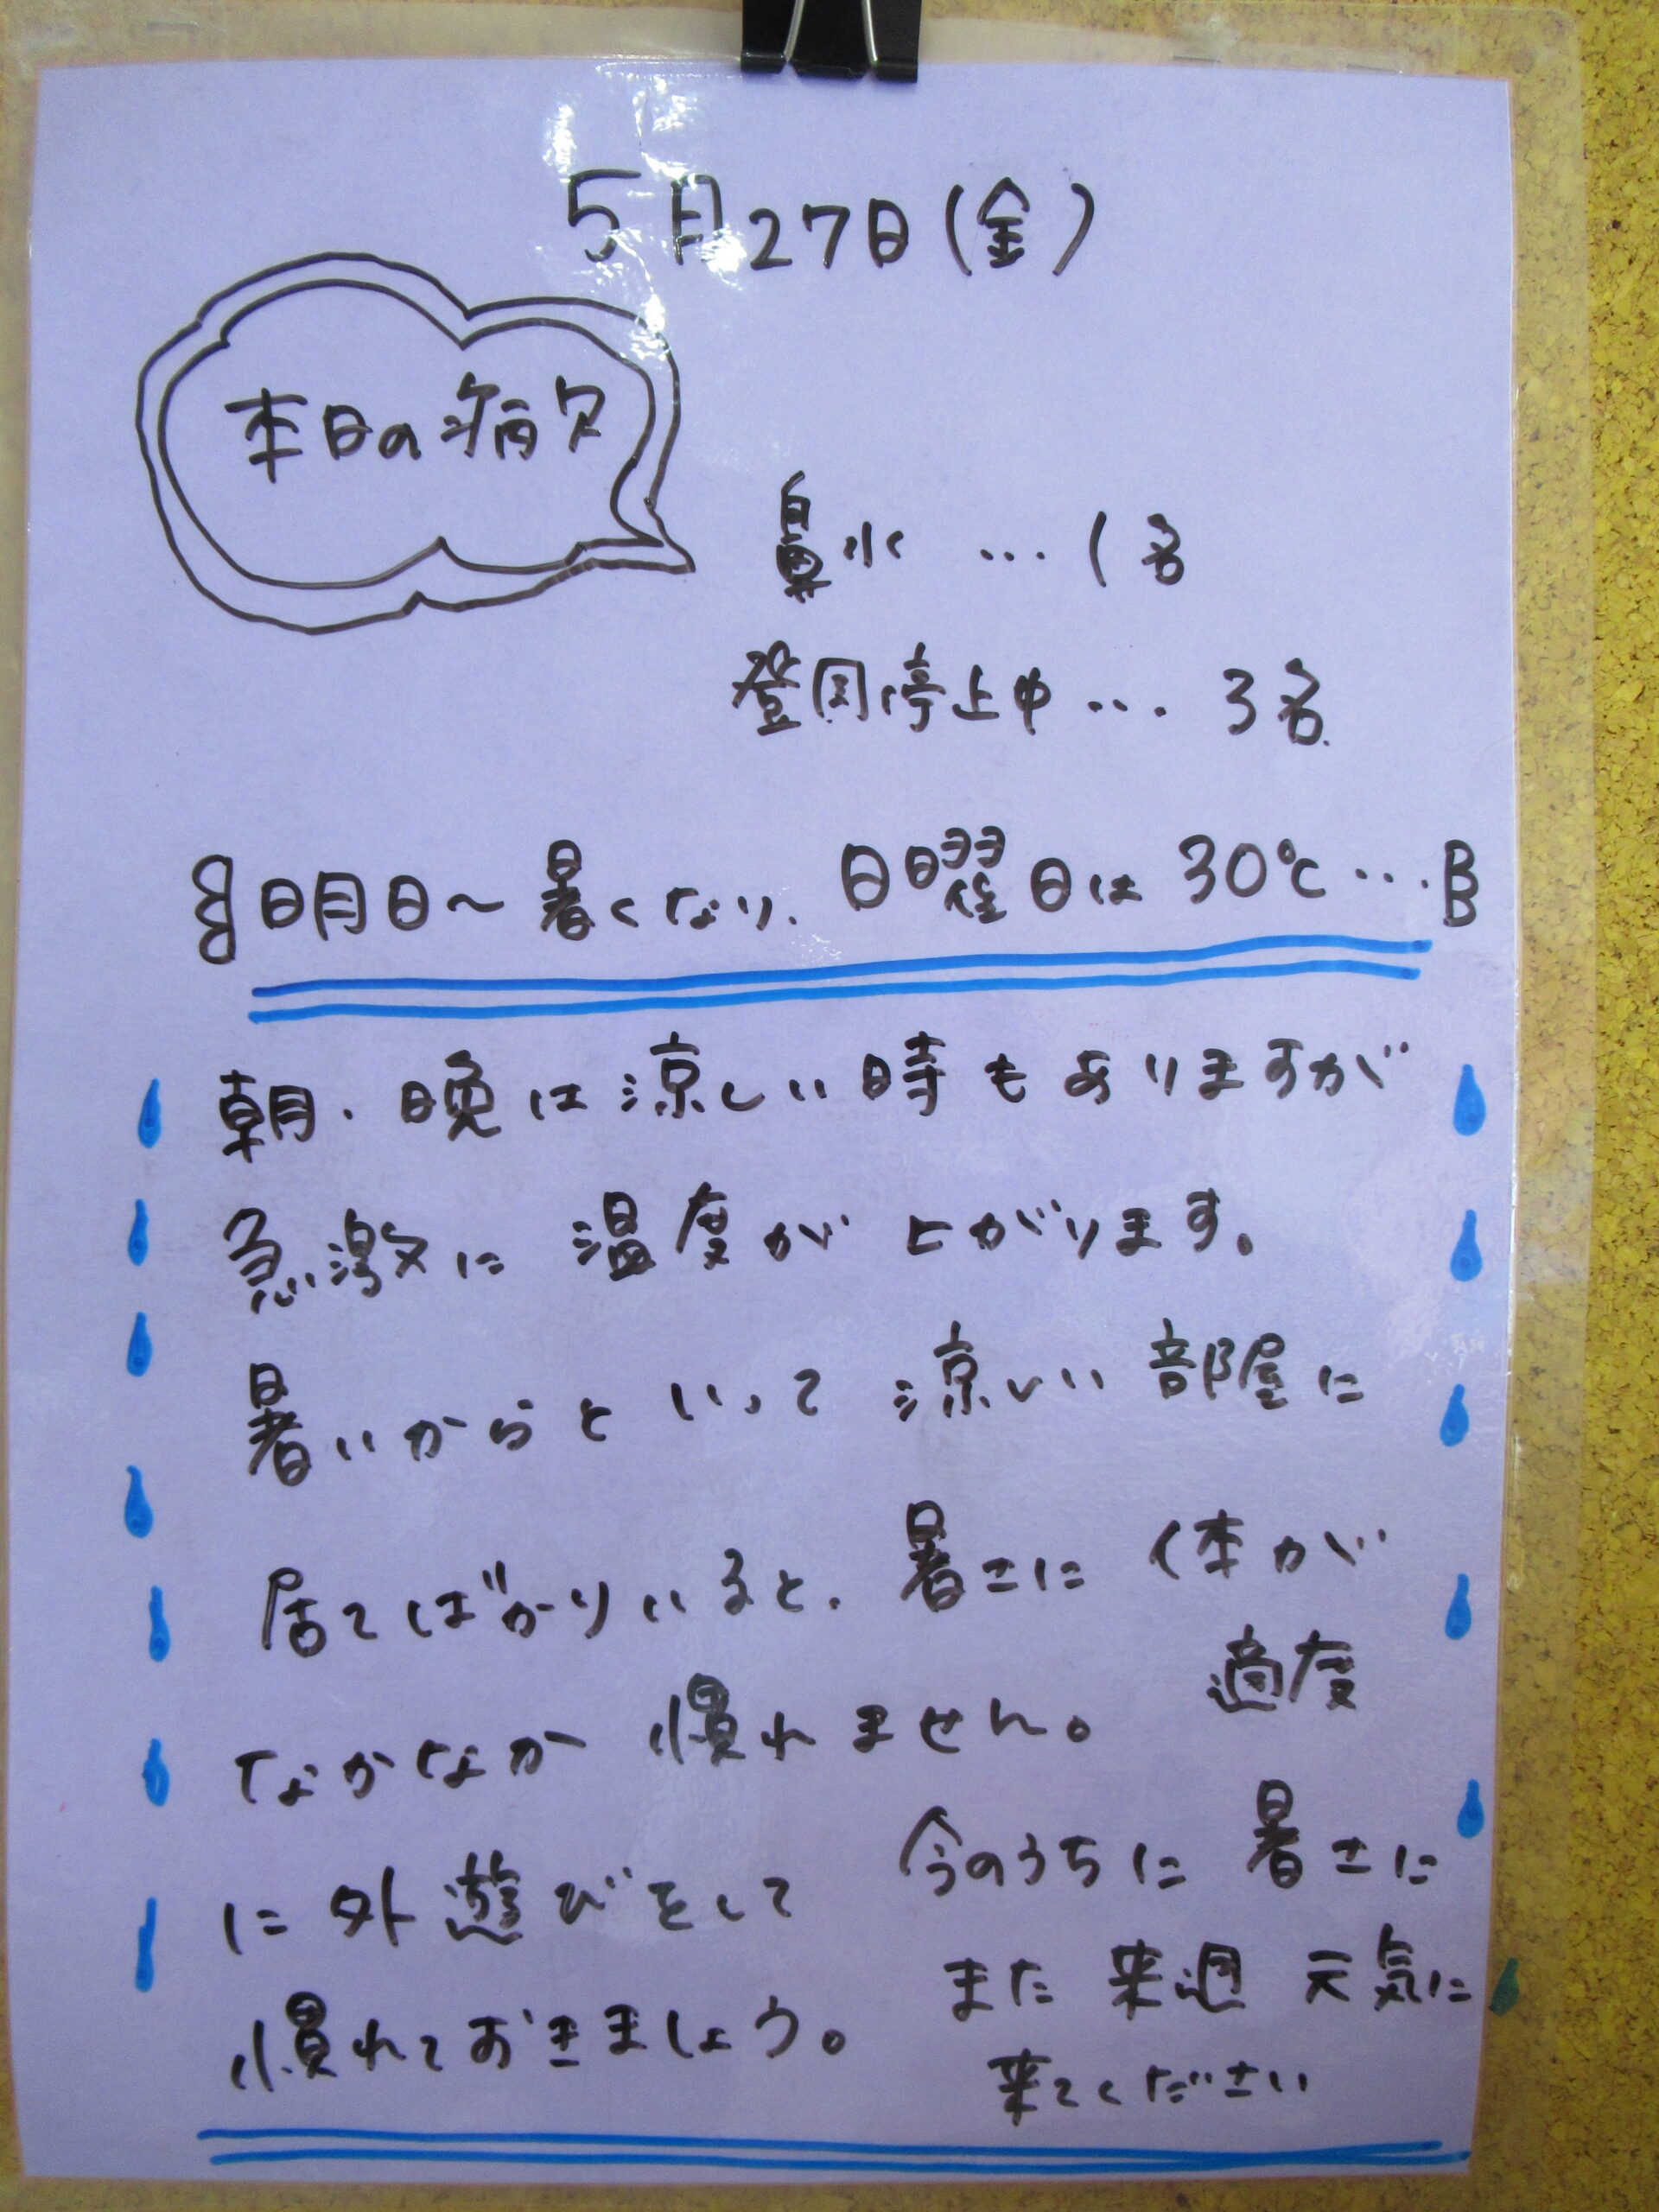 5月27日(金)
本日の病欠
鼻水 … 1名
登園停止中 … 3名.
明日～暑くなり、日曜日は30℃…
朝・晩は涼しい時もありますが
急激に温度が上がります。
暑いからといって涼しい部屋に
居てばかりいると、暑さに体が
なかなか慣れません。 適度
に外遊びをして 今のうちに暑さに
慣れておきましょう。 また来週元気に
来てください